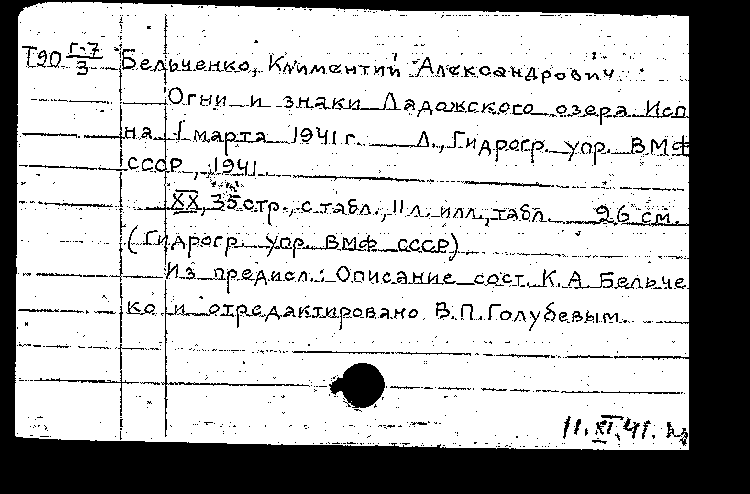 Т90 Г-7/3 Бельченко, Климентий Александрович
Огни и знаки Ладожского озера Исп
на 1 марта 1941 г. Л., Гидрогр. упр. ВМФ
СССР, 1941.
XX, 35 стр., с табл., 11 л. илл., табл. 26 см.
(Гидрогр. упр. ВМФ СССР)
Из предисл.: Описание сост. К.А. Бельче
ко и отредактировано В.П. Голубевым.
11.XI.41.